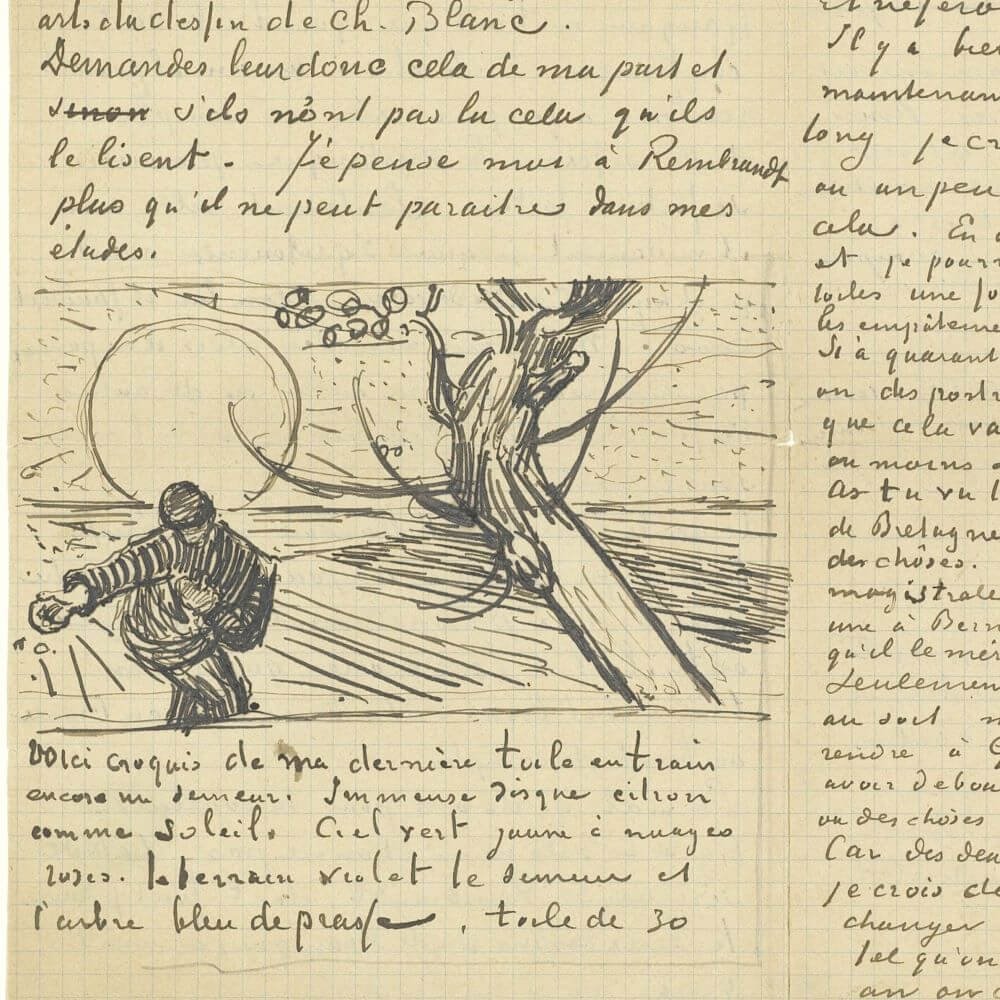 arts du dessin de Ch. Blanc.
Demandes leur donc cela de ma part et
sinon s'ils n'ont pas lu cela qu'ils
le lisent. Je pense moi à Rembrandt
plus qu'il ne peut paraitre dans mes
études.
Voici croquis de ma dernière toile en train
encore un semeur. Immense disque citron
comme soleil. Ciel vert jaune à nuages
roses. le terrain violet le semeur et
l'arbre bleu de prusse. toile de 30
Il y a bien
maintenant
long je cr
ou un peu
cela. En
et je pourr
toiles une
les empâteme
Si à quarant
on des portr
que cela va
ou moins
As tu vu l
de Bretagne
des chôses.
magistrale
une à Bern
qu'il le mér
Seulemen
au soit
rendre à G
avoir debou
ou des choses
Car des deu
je crois de
changer
Tel qu'on
an on